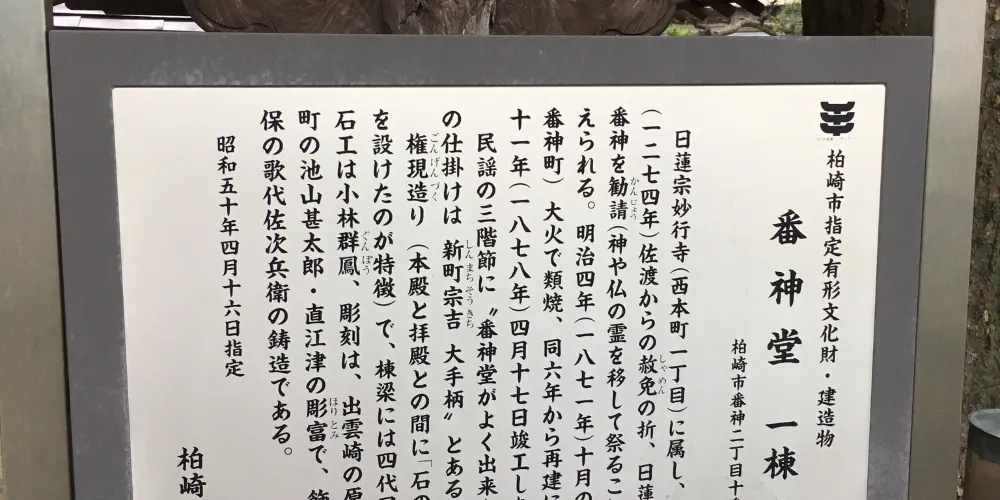 柏崎市指定有形文化財・建造物
番神堂 一棟
柏崎市番神二丁目十
日蓮宗妙行寺(西本町一丁目)に属し、
(一二七四年)佐渡からの赦免の折、日蓮
しゃめん
番神を勧請(神や仏の霊を移して祭るこ
かんじょう
えられる。明治四年(一八七一年)十月の
番神町)大火で類焼、同六年から再建に
十一年(一八七八年)四月十七日竣工し
民謡の三階節に〝番神堂がよく出来
の仕掛けは 新町宗吉 大手柄〟とある
しんまちそうきち
権現造り(本殿と拝殿との間に「石の
ごんげんづく
を設けたのが特徴)で、棟梁には四代
石工は小林群鳳、彫刻は、出雲崎の原
ぐんぽう
町の池山甚太郎・直江津の彫富で、
ほりとみ
保の歌代佐次兵衛の鋳造である。
昭和五十年四月十六日指定
柏崎